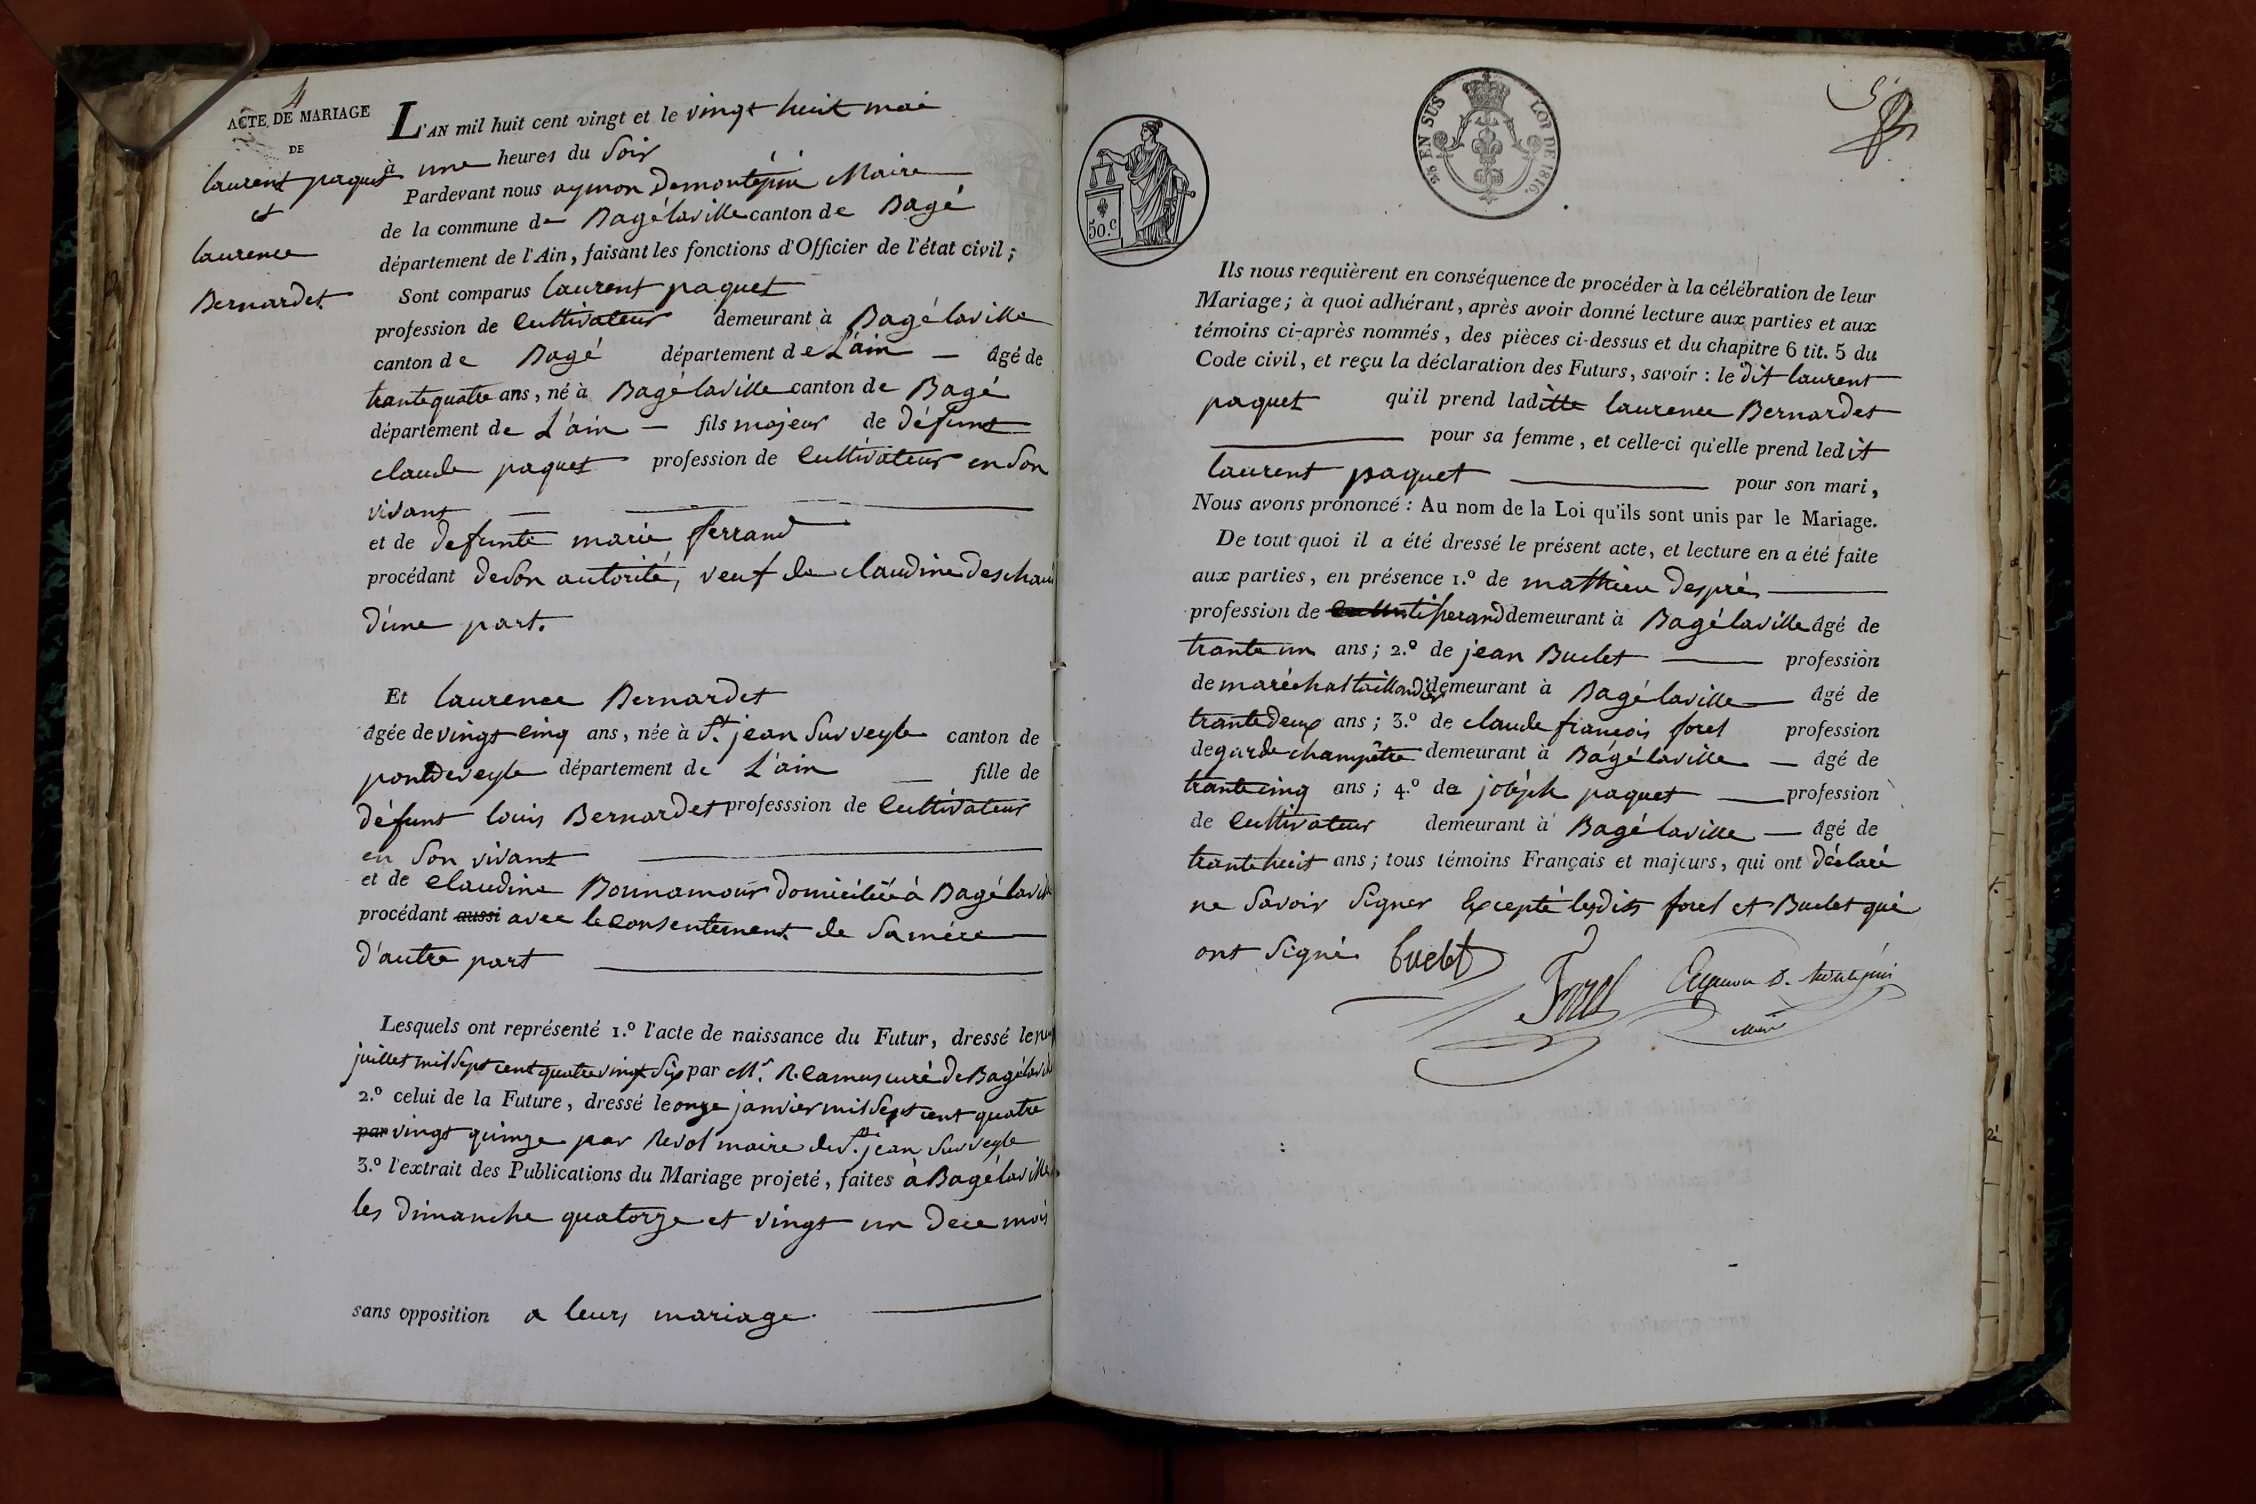 4
ACTE DE MARIAGE
DE
laurent paquet
et
laurence
Bernardet
L'AN mil huit cent vingt et le vingt huit mai
à une heures du soir
Pardevant nous aymon Demontépin Maire
de la commune de Bagélaville canton de Bagé
département de l'Ain, faisant les fonctions d'Officier de l'état civil;
Sont comparus laurent paquet
profession de Cultivateur demeurant à Bagélaville
canton de Bagé département de L'ain — âgé de
trantequatre ans, né à Bagélaville canton de Bagé
département de L'ain — fils majeur de défunt
claude paquet profession de Cultivateur en son
vivant
et de defunte marie ferrand
procédant de son autorité, veuf de claudine
d'une part.
Et laurence Bernardet
âgée de vingt cinq ans, née à St. jean sur veyle canton de
pontdeveyle département de L'ain — fille de
défunt louis Bernardet professsion de Cultivateur
en son vivant
et de Claudine Bonnamour domiciliée à Bagélaville
procédant aussi avec le consentement de sa mère
d'autre part
Lesquels ont représenté 1.º l'acte de naissance du Futur, dressé le
juillet mil sept cent quatre vingt six par Mr. curé de Bagélaville
2.º celui de la Future, dressé le onze janvier mil sept cent quatre
par vingt quinze par Revol maire de St. jean sur veyle
3.º l'extrait des Publications du Mariage projeté, faites à Bagélaville
les dimanche quatorze et vingt un de ce mois
sans opposition a leurs mariage.
50.C
25 EN SUS
LOI DE 1816.
Ils nous requièrent en conséquence de procéder à la célébration de leur
Mariage; à quoi adhérant, après avoir donné lecture aux parties et aux
témoins ci-après nommés, des pièces ci-dessus et du chapitre 6 tit. 5 du
Code civil, et reçu la déclaration des Futurs, savoir: le dit laurent
paquet qu'il prend laditte laurence Bernardet
pour sa femme, et celle-ci qu'elle prend ledit
laurent paquet pour son mari,
Nous avons prononcé: Au nom de la Loi qu'ils sont unis par le Mariage.
De tout quoi il a été dressé le présent acte, et lecture en a été faite
aux parties, en présence 1.º de mathieu Després
profession de tisserand demeurant à Bagélaville âgé de
trante un ans; 2.º de jean Buclet profession
de maréchal taillandier demeurant à Bagélaville — âgé de
trantedeux ans; 3.º de claude françois forel profession
de garde champêtre demeurant à Bagélaville — âgé de
trante cinq ans; 4.º de joséph paquet profession
de Cultivateur demeurant à Bagélaville — âgé de
trante huit ans; tous témoins Français et majeurs, qui ont déclaré
ne savoir signer Excepté lesdits forel et Buclet qui
ont signé Buclet
Forel
Aymon D. Montépin
Maire